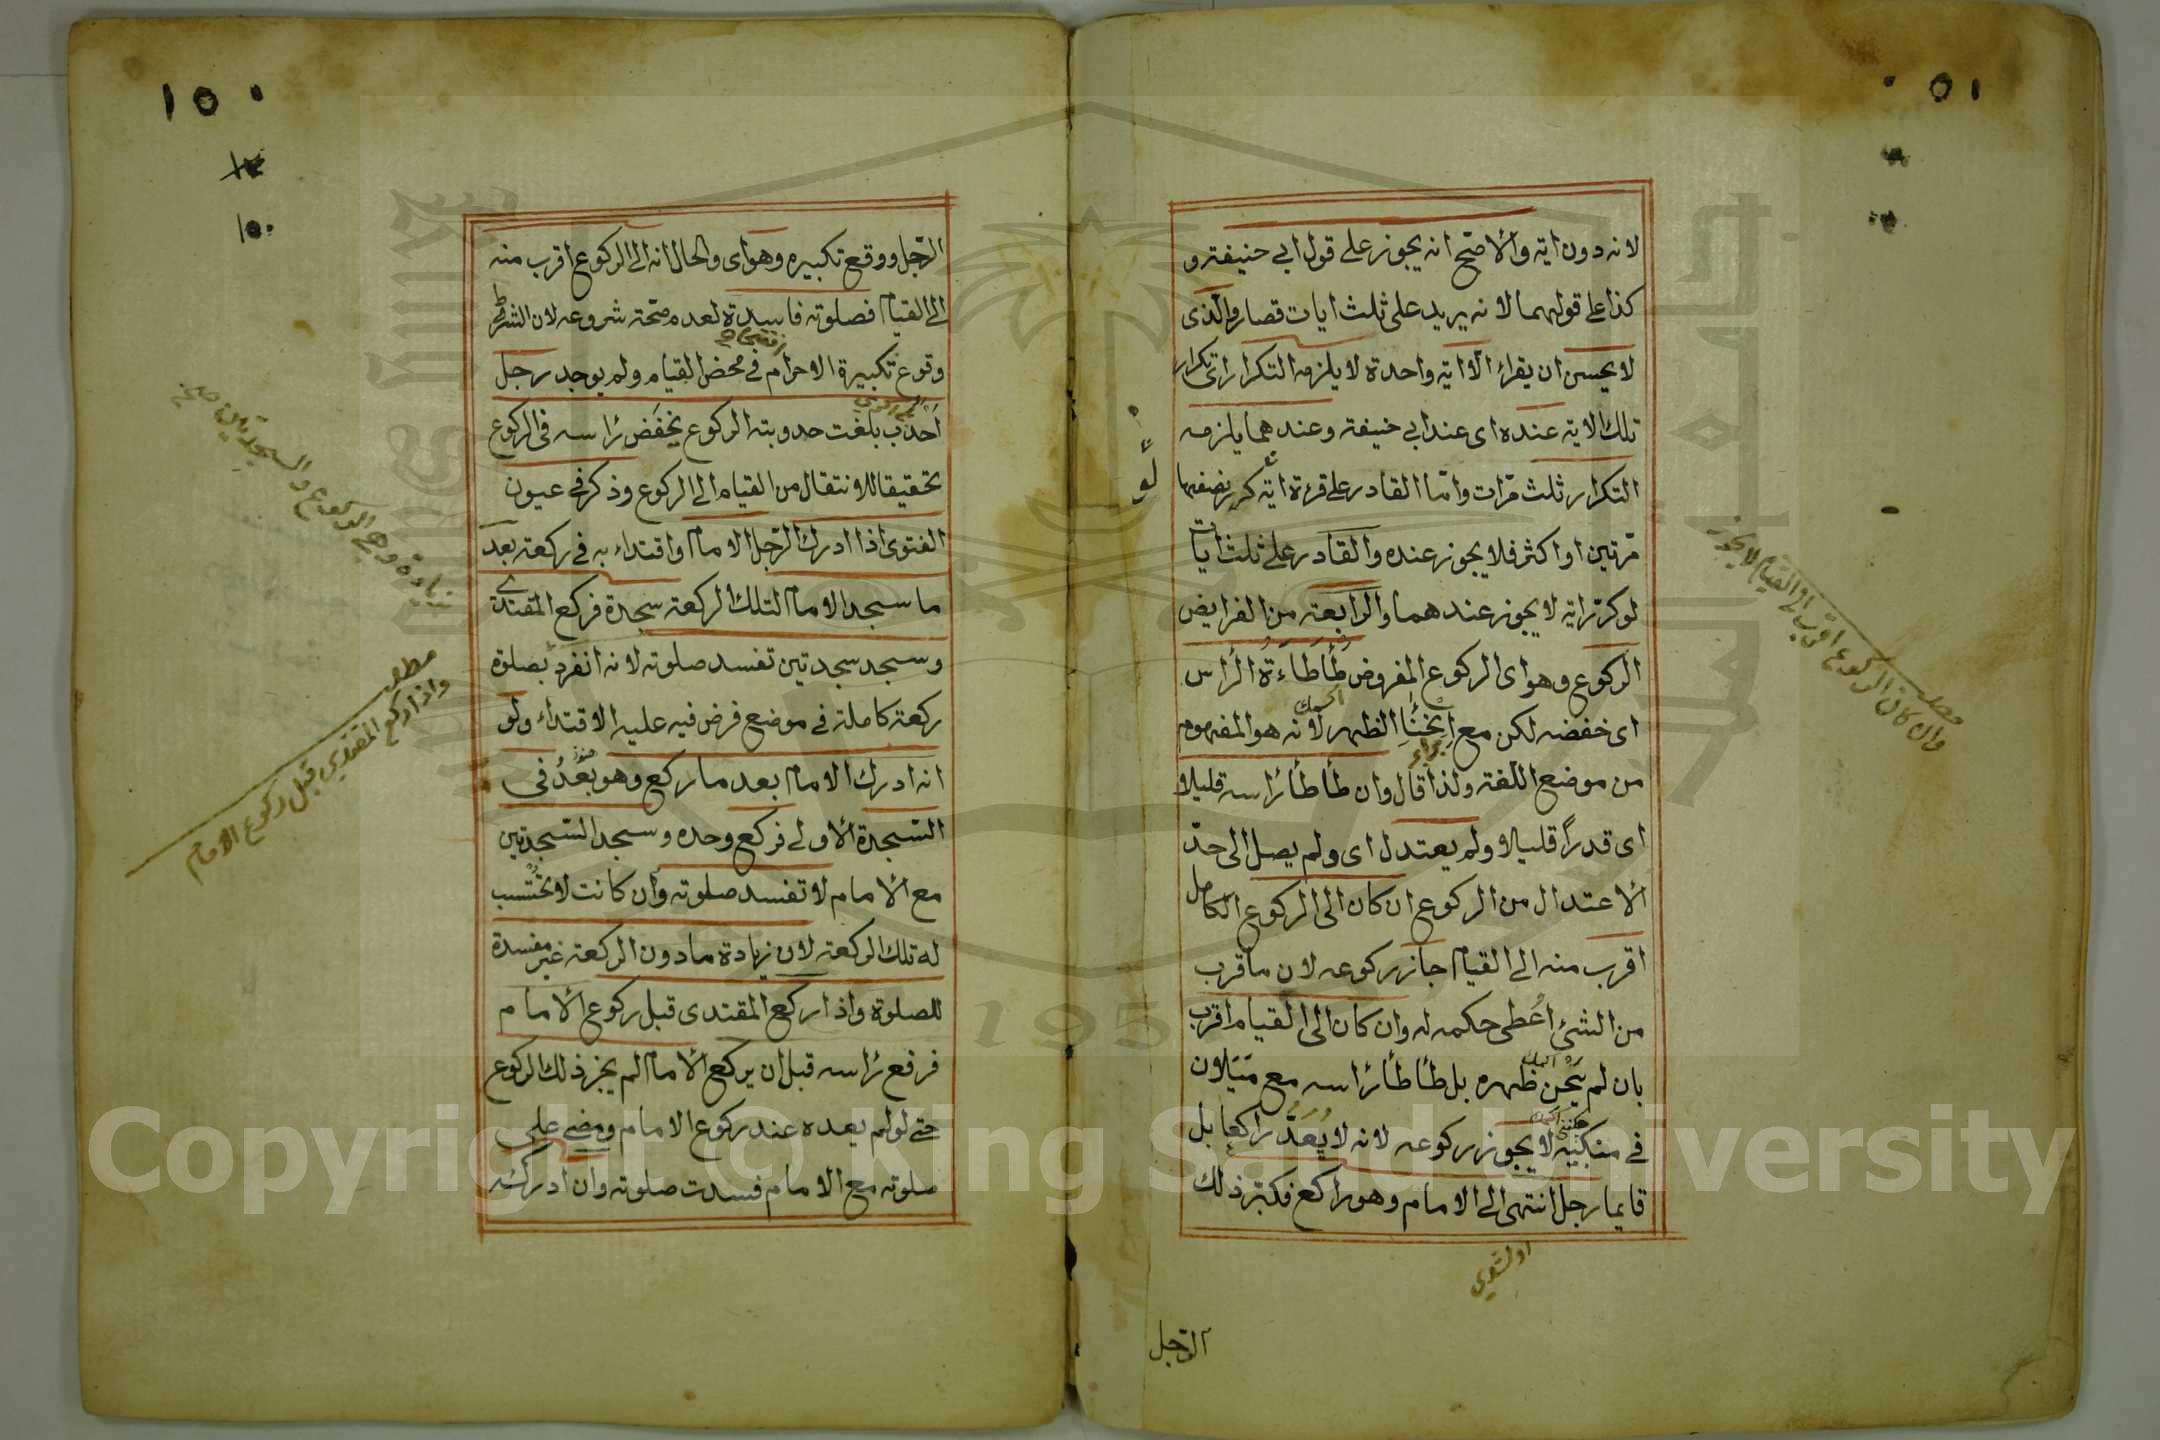 لانه دون اية والاصح انه يجوز على قول ابي حنيفة و
كذا على قولهما لانه يزيد على ثلث ايات قصار والذى
لا يحسن ان يقراء الا اية واحدة لا يلزمه التكرار اى تكرار
تلك الاية عنده اى عند ابي حنيفة وعندهما يلزمه
التكرار ثلث مرات واما القادر على قرءة اية كرر نصفها
مرتين او اكثر فلا يجوز عنده والقادر على ثلث ايات
لو كرر اية لا يجوز عندهما والرابعة من الفرايض
الركوع وهو اى الركوع المفروض طأطاءة الراس
اى خفضه لكن مع انحناء الظهر لانه هو المفهوم
من موضع اللغة ولذا قال وان طأطأ راسه قليلا
اى قدرا قليلا ولم يعتدل اى ولم يصل الى حد
الاعتدال من الركوع ان كان الى الركوع الكامل
اقرب منه الى القيام جاز ركوعه لان ما قرب
من الشئ اعطى حكمه له وان كان الى القيام اقرب
بان لم ينحن ظهره بل طأطأ راسه مع ميلان
في منكبيه لا يجوز ركوعه لانه لا يعد راكعا بل
قايما رجل انتهى الى الامام وهو راكع فكبر ذلك
الرجل
وان كان الركوع اقرب الى القيام لا يجوز
١٥٠
١٥٠
الرجل ووقع تكبيره وهو اى والحال انه الى الركوع اقرب منه
الى القيام فصلوته فاسدة لعدم صحة شروعه لان الشرط
وقوع تكبيرة الاحرام في محض القيام ولم يوجد رجل
احدب بلغت حدوبته الركوع يخفض راسه في الركوع
تحقيقا للانتقال من القيام الى الركوع وذكر في عيون
الفتوى اذا ادرك الرجل الامام واقتداء به في ركعة بعد
ما سجد الامام لتلك الركعة سجدة فركع المقتدى
وسجد سجدتين تفسد صلوته لانه انفرد بصلوة
ركعة كاملة في موضع فرض فيه عليه الاقتداء ولو
انه ادرك الامام بعد ما ركع وهو بعد في
السجدة الاولى فركع وحده وسجد السجدتين
مع الامام لا تفسد صلوته وان كانت لا تحتسب
له تلك الركعة لان زيادة ما دون الركعة غير مفسدة
للصلوة واذا ركع المقتدى قبل ركوع الامام
فرفع راسه قبل ان يركع الامام لم يجز ذلك الركوع
حتى لو لم يعده عند ركوع الامام ومضى على
صلوته مع الامام فسدت صلوته وان ادركه
واذا ركع المقتدي قبل ركوع الامام
Copyright © King Saud University
195